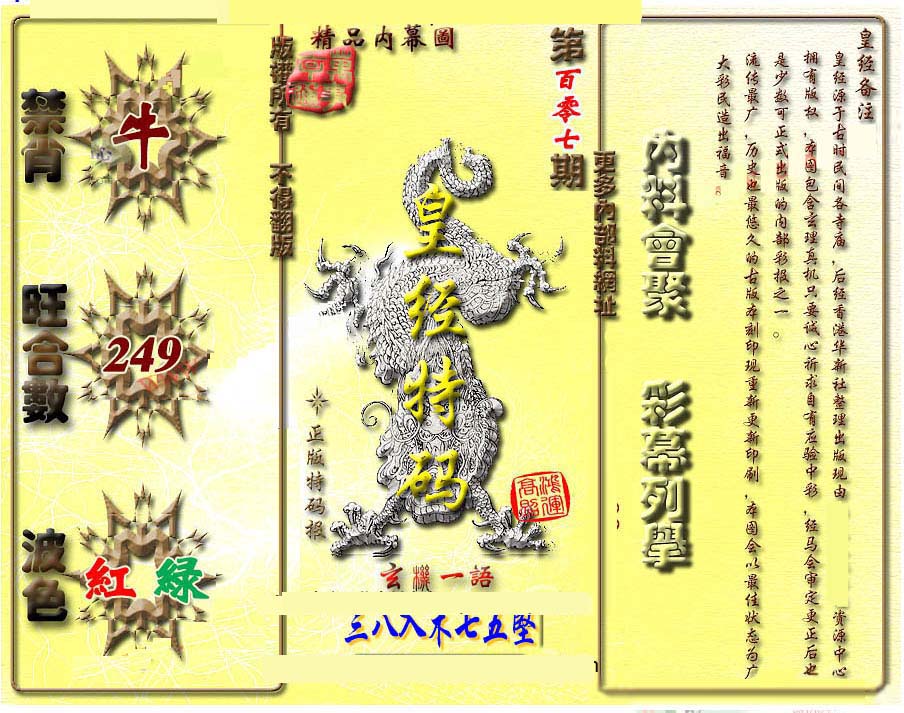 禁肖
牛
旺合數
249
波色
紅 綠
版權所有 不得翻版
精品內幕圖
第百零七期
皇经特码
正版特码报
鴻運高照
玄機一語
三八入不七五堅
更多內部料網址
內料會聚
彩幕列舉
皇经备注
皇经源于古时民间各寺庙，后经香港华新社整理出版现由
资源中心
拥有版权，本图包含玄理真机只要诚心祈求自有应验中彩，经马会审定更正后也
是少数可正式出版的内部彩报之一。
流传最广，历史也最悠久的古版本刻印现重新更新印刷，本图会以最佳状态为广
大彩民造出福音